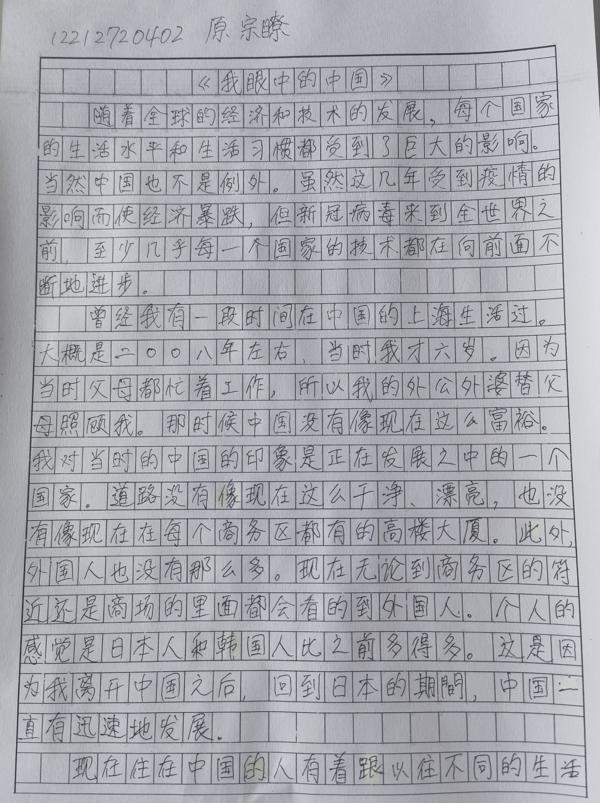 12212720402 原宗瞭
《我眼中的中国》
随着全球的经济和技术的发展，每个国家
的生活水平和生活习惯都受到了巨大的影响。
当然中国也不是例外。虽然这几年受到疫情的
影响而使经济暴跌，但新冠病毒来到全世界之
前，至少几乎每一个国家的技术都在向前面不
断地进步。
曾经我有一段时间在中国的上海生活过。
大概是二〇〇八年左右，当时我才六岁。因为
当时父母都忙着工作，所以我的外公外婆替父
母照顾我。那时候中国没有像现在这么富裕。
我对当时的中国的印象是正在发展之中的一个
国家。道路没有像现在这么干净、漂亮，也没
有像现在在每个商务区都有的高楼大厦。此外，
外国人也没有那么多。现在无论到商务区的符
近还是商场的里面都会看的到外国人。个人的
感觉是日本人和韩国人比之前多得多。这是因
为我离开中国之后，回到日本的期間，中国一
直有迅速地发展。
现在住在中国的人有着跟以住不同的生活